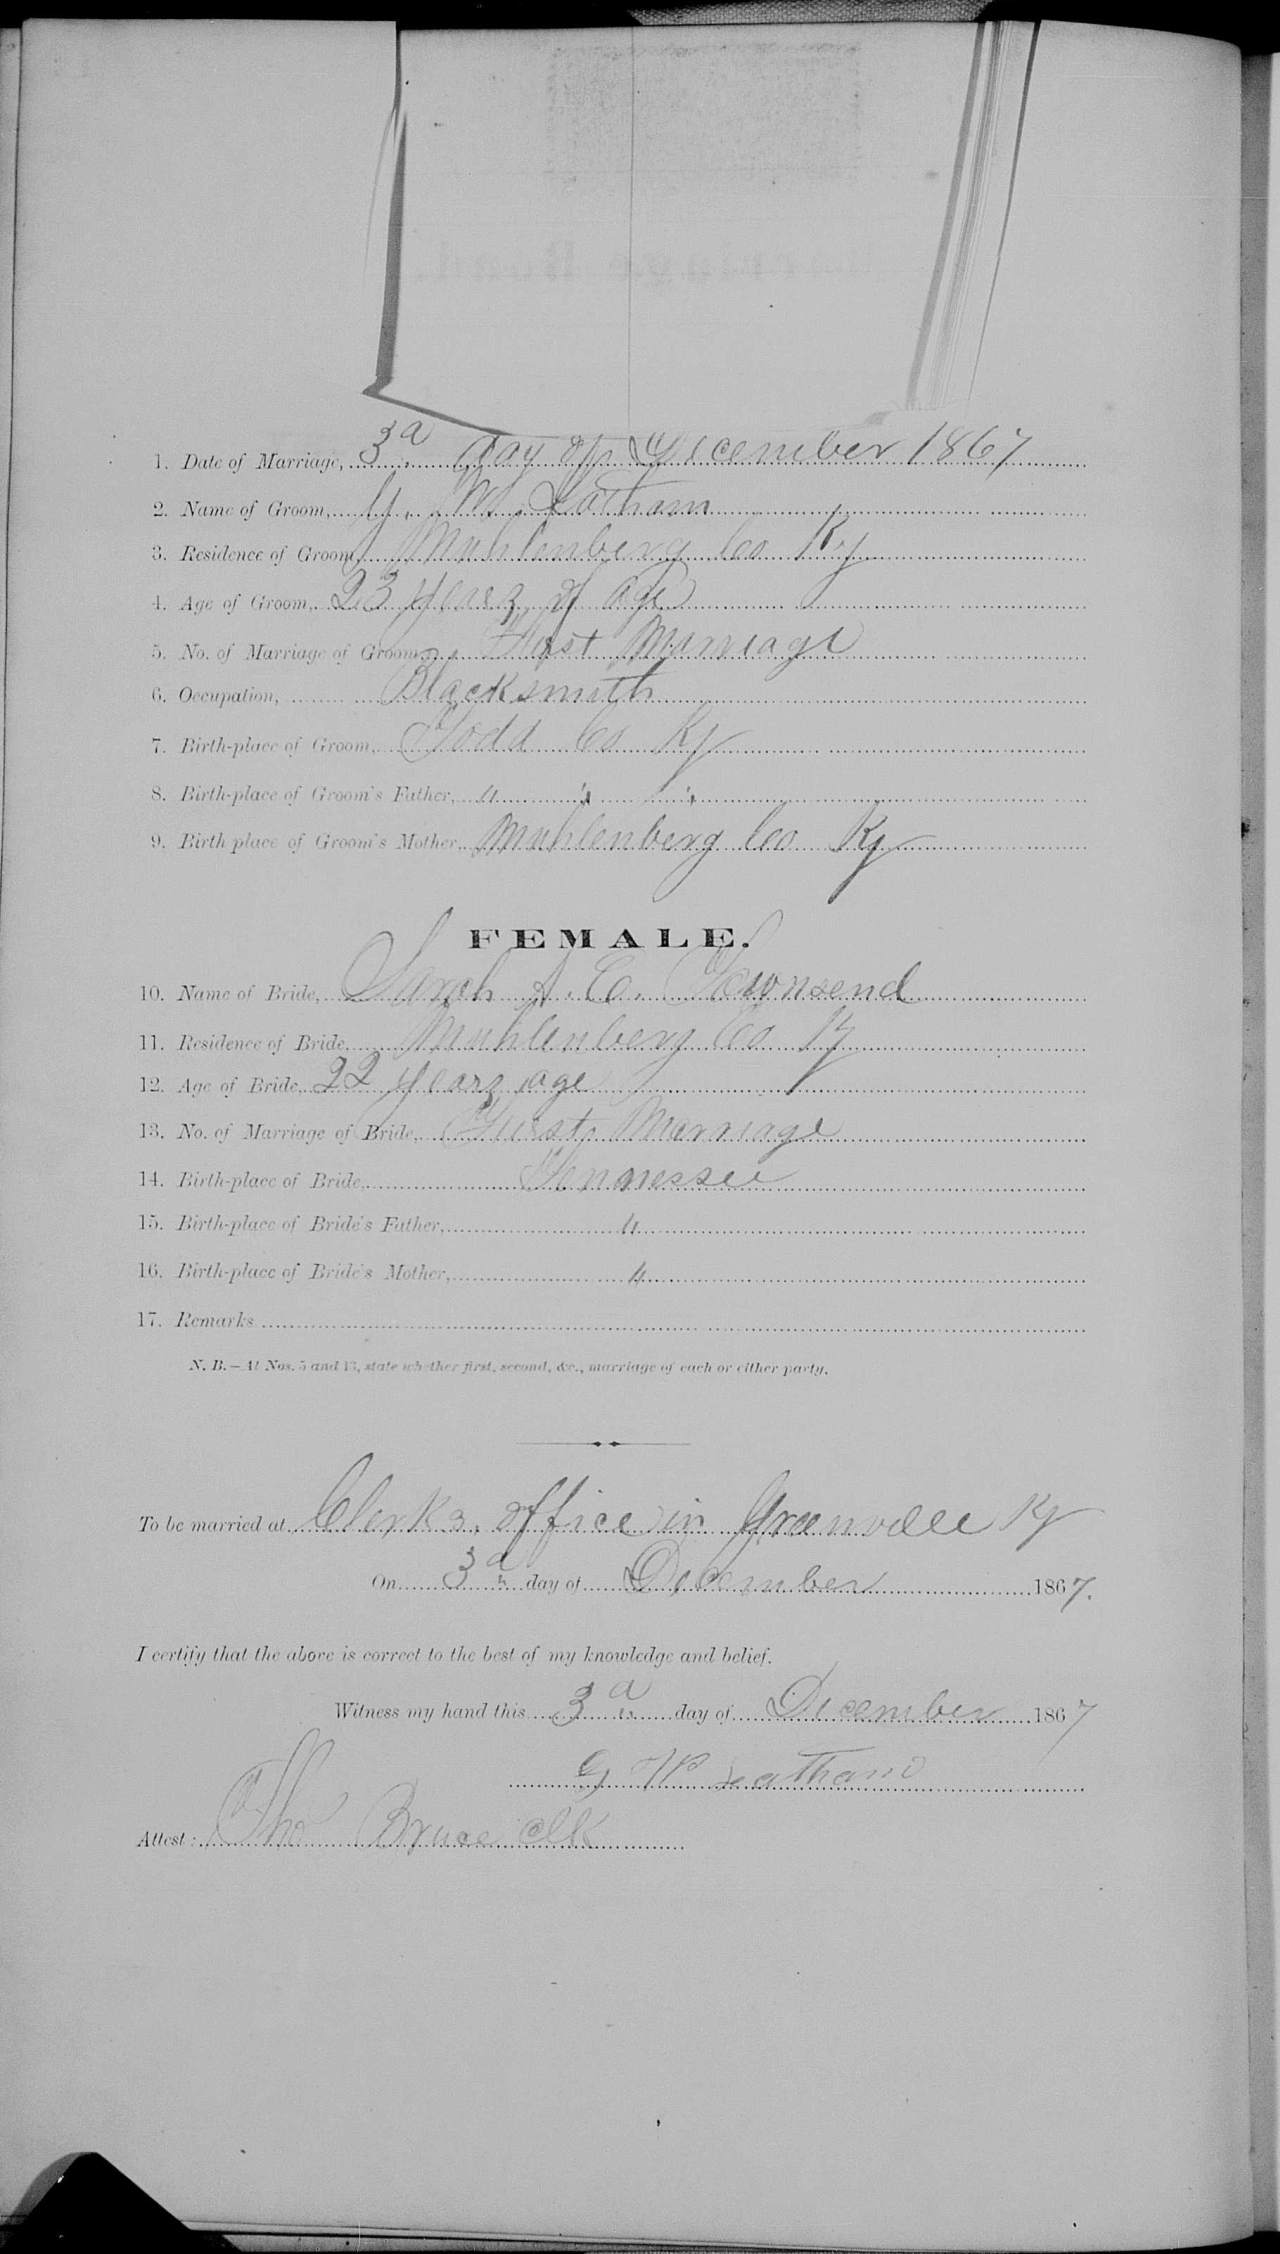 1. Date of Marriage, 3d day of December 1867
2. Name of Groom, G. W. Latham
3. Residence of Groom, Muhlenberg Co Ky
4. Age of Groom, 23 years of age
5. No. of Marriage of Groom, First Marriage
6. Occupation, Blacksmith
7. Birth-place of Groom, Todd Co Ky
8. Birth-place of Groom's Father, " " "
9. Birth place of Groom's Mother, Muhlenberg Co Ky
FEMALE.
10. Name of Bride, Sarah A. E. Townsend
11. Residence of Bride, Muhlenberg Co Ky
12. Age of Bride, 22 years age
13. No. of Marriage of Bride, First Marriage
14. Birth-place of Bride, Tennessee
15. Birth-place of Bride's Father, "
16. Birth-place of Bride's Mother, "
17. Remarks
N. B.—At Nos. 5 and 13, state whether first, second, &c., marriage of each or either party.
To be married at Clerks office in Greenville Ky
On 3d day of December 1867.
I certify that the above is correct to the best of my knowledge and belief.
Witness my hand this 3d day of December 1867
G W Latham
Attest: Tho Bruce Clk